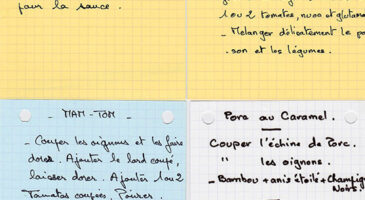 pour la sauce.
1 ou 2 tomates, nuoc et glutama
_ Melanger délicatement le po
. son et les légumes.
_ MAM - TOM _
_ Couper les oignons et les faire
dorer. Ajouter le lard coupé,
laisser dorer. Ajouter 1 ou 2
Tomates coupées. Poivrer.
Porc au Caramel.
Couper l'échine de Porc.
" les oignons.
_ Bambou + anis étoilé + Champig
Noirs.